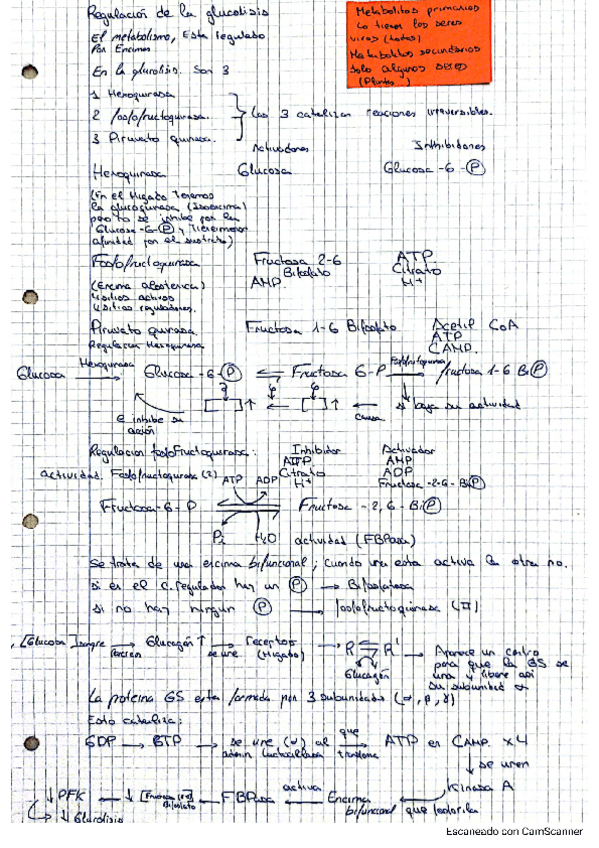 Regulación de la glucolisis
Metabolitos primarios
Lo tienen los seres
vivos (todos)
Metabolitos secundarios
Solo algunos seres
(Plantas)
El metabolismo, Esta regulado
Por Encimas
En la glucolisis. Son 3
1 Hexoquinasa
2 fosfofructoquinasa.
3 Piruvato quinasa.
Las 3 catalizan reacciones irreversibles.
Activadores Inhibidores
Hexoquinasa Glucosa Glucosa-6-P
(En el Higado Tenemos
la glucoquinasa (Isoencima)
pero no se inhibe por la
Glucosa-6-P y Tiene menor
afinidad por el sustrato)
Fosfofructoquinasa Fructosa 2-6 Bifosfato ATP
AMP Citrato
(Encima alosterica) H+
4 sitios activos
4 sitios reguladores.
Piruvato quinasa. Fructosa 1-6 Bifosfato Acetil CoA
ATP
CAMP.
Regulacion Hexoquinasa
Glucosa Hexoquinasa Glucosa-6-P Fructosa 6-P Fosfofructoquinasa fructosa 1-6 Bi P
e inhibe su acción
causa
si baja su actividad
Regulacion fosfofructoquinasa: Inhibidor Activador
ATP AMP
Citrato ADP
H+ Fructosa-2-6-Bi P
actividad. Fosfofructoquinasa (2) ATP ADP
Fructosa-6-P Fructosa-2,6-Bi P
Pi H2O actividad (FBPasa)
Se trata de una encima bifuncional; cuando una esta activa la otra no.
si en el c. regulador hay un P → Bifosfatasa
si no hay ningun P → fosfofructoquinasa (II)
[Glucosa] sangre Glucagón ↑ se une receptor (Higado) R R' Glucagón
Aparece un centro
para que la GS se
una y libere asi
su subunidad α
La proteina GS esta formada por 3 subunidades (α, β, γ)
Esto cataliza:
GDP → GTP → se une (α) al que ATP en CAMP. x4
se unen
Kinasa A
Encima bifuncional que fosforila
activa
FBPasa
↓ PFK
↓ Glucolisis
Escaneado con CamScanner